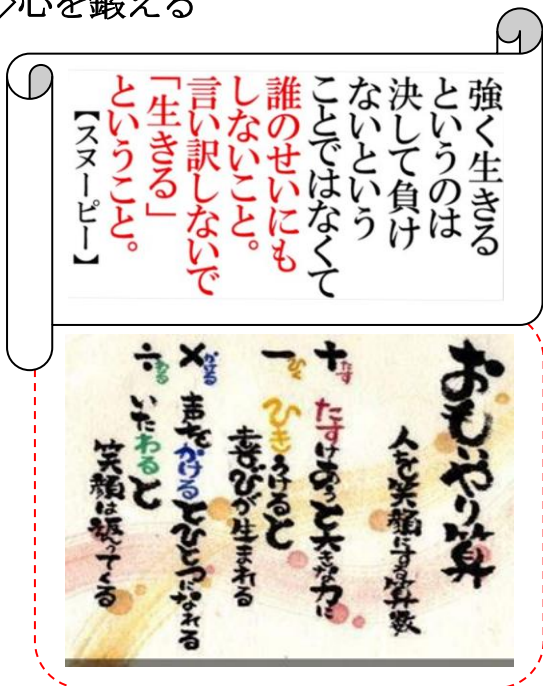 心を鍛える
強く生きる
というのは
決して負け
ないという
ことではなくて
誰のせいにも
しないこと。
言い訳しないで
「生きる」
ということ。
【スヌーピー】
おもいやり算
人を笑顔にする算数
＋たす
たすけあうと大きな力に
－ひく
ひきうけると
喜びが生まれる
×かける
声をかけるとひとつになれる
÷わる
いたわると
笑顔は返ってくる